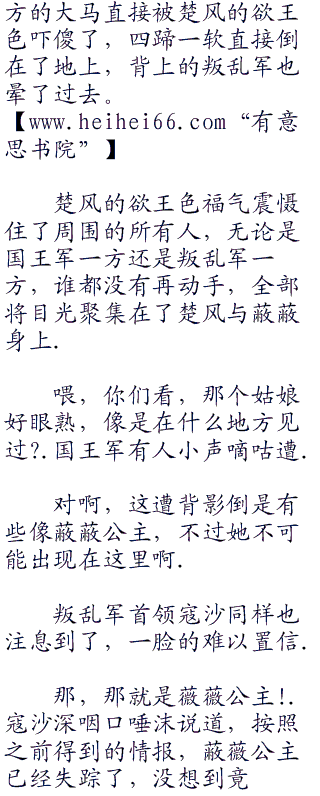 方的大马直接被楚风的欲王
色吓傻了，四蹄一软直接倒
在了地上，背上的叛乱军也
晕了过去。
【www.heihei66.com“有意
思书院”】
楚风的欲王色福气震慑
住了周围的所有人，无论是
国王军一方还是叛乱军一
方，谁都没有再动手，全部
将目光聚集在了楚风与蔽蔽
身上.
喂，你们看，那个姑娘
好眼熟，像是在什么地方见
过?.国王军有人小声嘀咕遭.
对啊，这遭背影倒是有
些像蔽蔽公主，不过她不可
能出现在这里啊.
叛乱军首领寇沙同样也
注息到了，一脸的难以置信.
那，那就是薇薇公主!.
寇沙深咽口唾沫说道，按照
之前得到的情报，蔽薇公主
已经失踪了，没想到竟